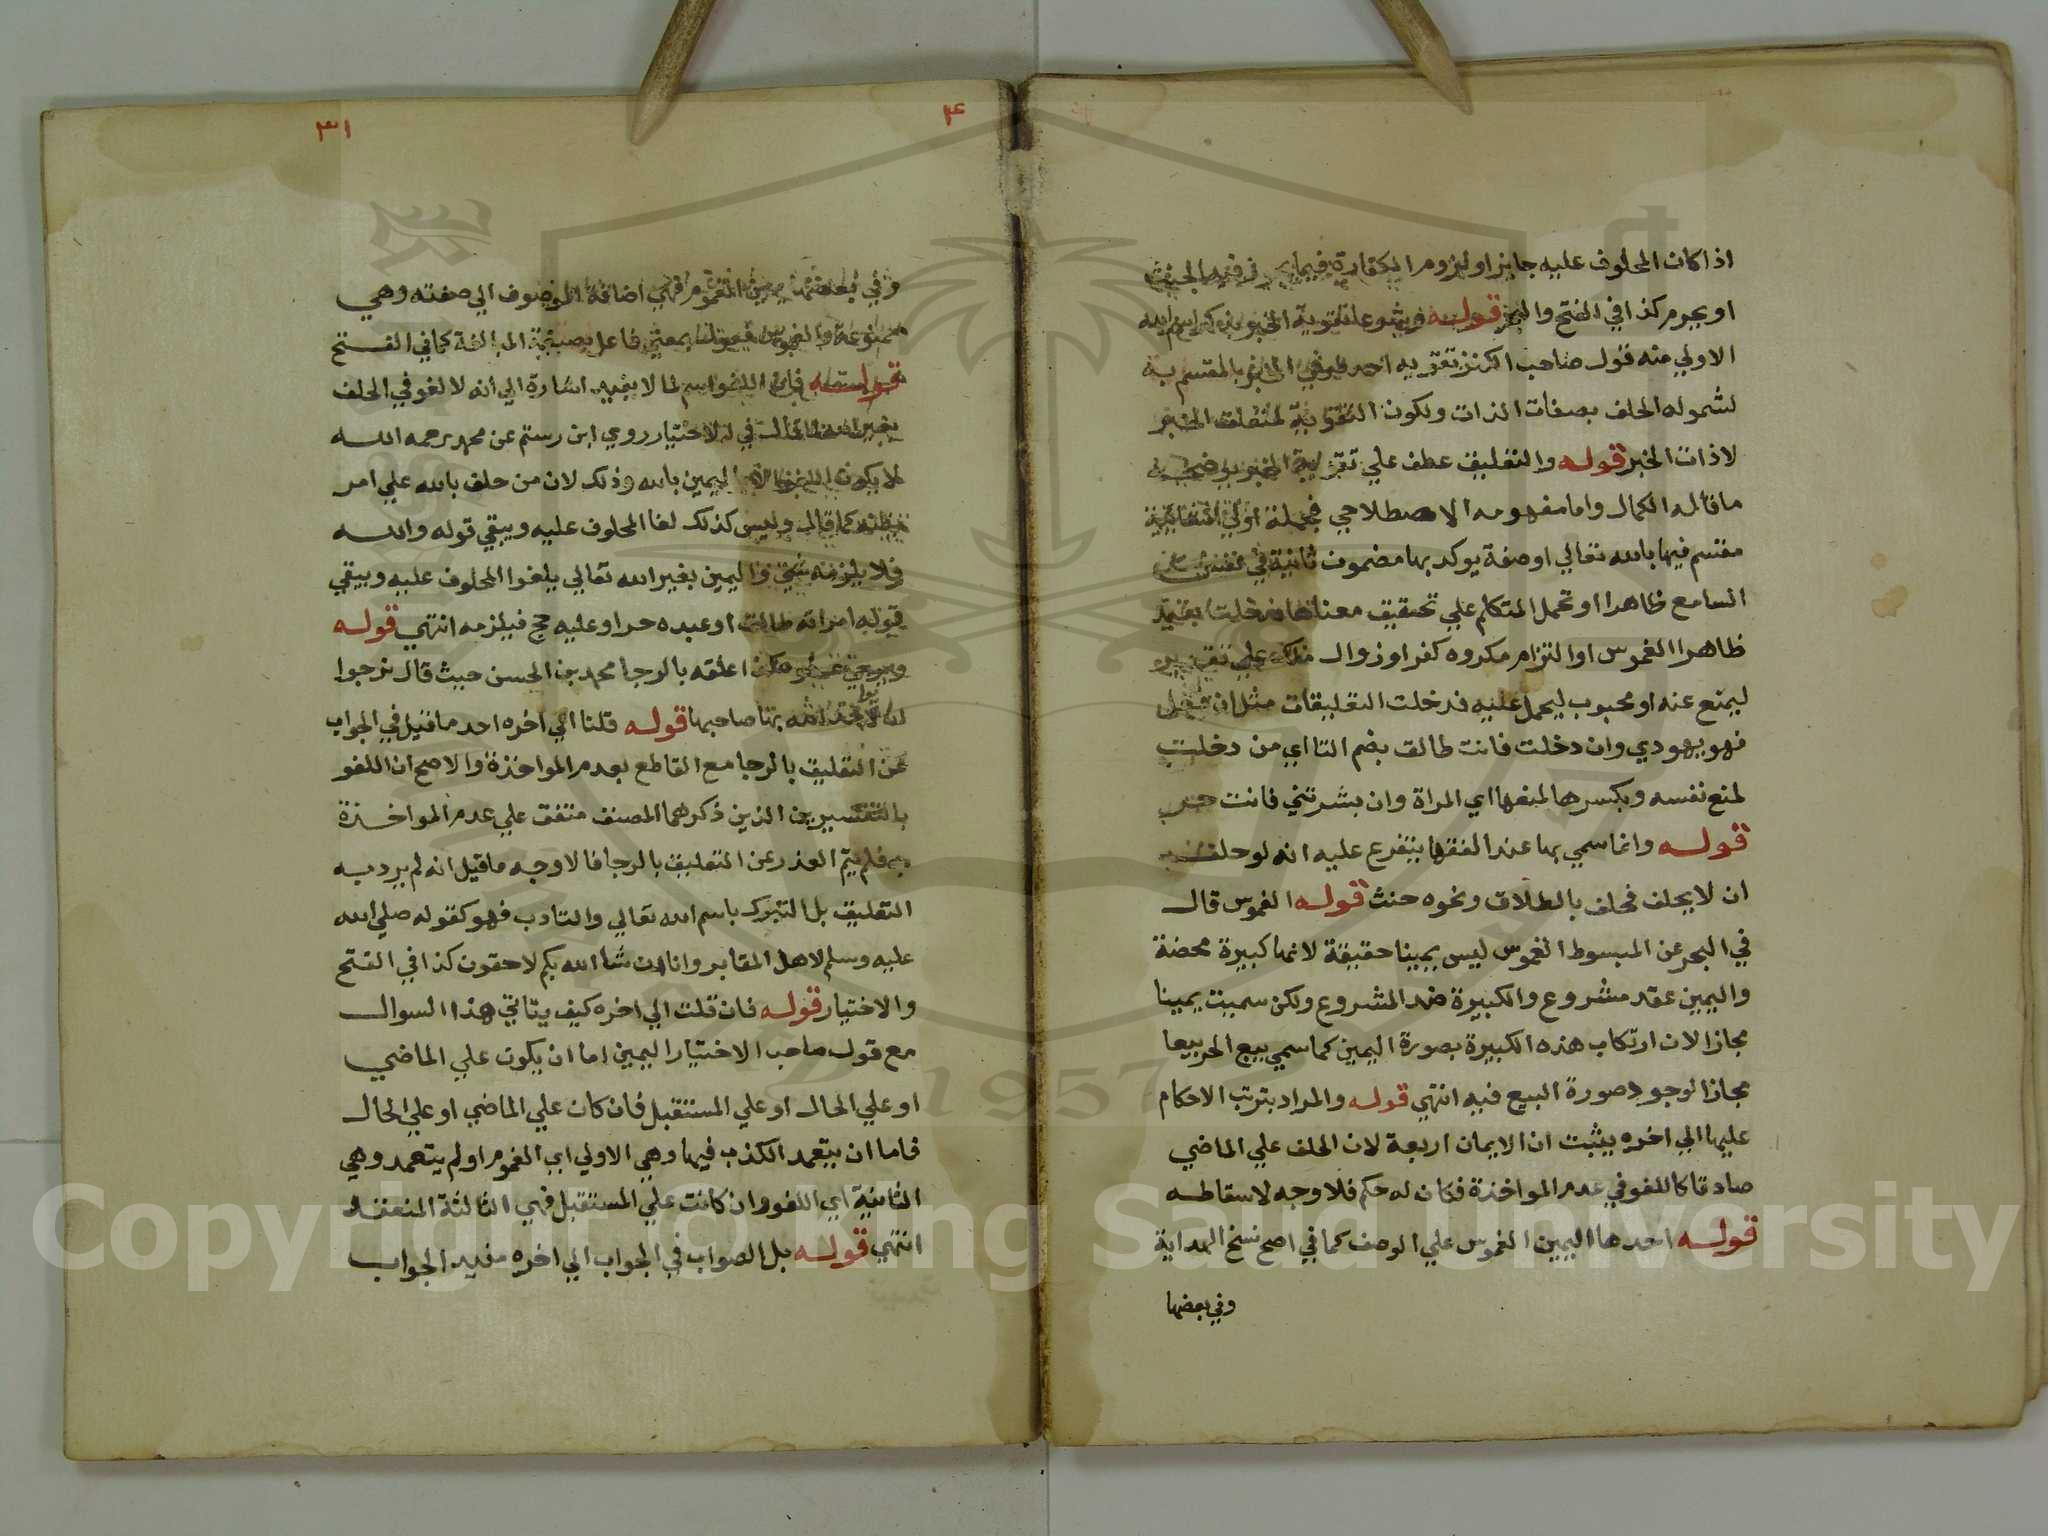 اذا كان المحلوف عليه جايزا ولزوم الكفارة فيما يجوز فيه الحنث
او يحرم كذا في الفتح والبحر قوله وشرعا تقوية الخبر بذكر اسم الله
الاولي منه قول صاحب الكنز تقوية احد طرفي الخبر بالمقسم به
لشموله الحلف بصفات الذات ولكون التقوية لمتعلق الخبر
لا ذات الخبر قوله والتعليق عطف علي تقوية الخبر
ما قاله الكمال واما مفهومه الاصطلاحي فجملة اولي انشائية
مقسم فيها بالله تعالي او صفة يوكد بها مضمون ثانية في نفس
السامع ظاهرا او تحمل المتكلم علي تحقيق معناها فدخلت بقيد
ظاهرا الغموس او التزام مكروه كفر او زوال ملك علي تقدير
ليمنع عنه او محبوب ليحمل عليه فدخلت التعليقات مثل ان فعل
فهو يهودي وان دخلت فانت طالق بضم التا اي من دخلت
لمنع نفسه وبكسرها لمنعها اي المراة وان بشرتني فانت حر
قوله وانما سمي بها عند الفقها يتفرع عليه انه لو حلف
ان لا يحلف فحلف بالطلاق ونحوه حنث قوله الغموس قال
في البحر عن المبسوط الغموس ليس يمينا حقيقة لانها كبيرة محضة
واليمين عقد مشروع والكبيرة ضد المشروع ولكن سميت يمينا
مجازا لان ارتكاب هذه الكبيرة بصورة اليمين كما سمي بيع الحر بيعا
مجازا لوجود صورة البيع فيه انتهي قوله والمراد بترتب الاحكام
عليها الي اخره يثبت ان الايمان اربعة لان الحلف علي الماضي
صادقا كاللغو في عدم المواخذة فكان له حكم فلا وجه لاسقاطه
قوله احدها اليمين الغموس علي الوصف كما في اصح نسخ الهداية
وفي بعضها
٤
٣١
وفي بعضها يمين الغموس فهي اضافة الموصوف الي صفته وهي
ممنوعة والغموس فعول بمعني فاعل بصيغة المبالغة كما في الفتح
قوله فان اللغو اسم لما لا يفيد اشارة الي انه لا لغو في الحلف
بغير الله تعالي قال في الاختيار روي ابن رستم عن محمد رحمه الله
لا يكون اللغو الا في اليمين بالله وذلك لان من حلف بالله علي امر
يظنه كما قال وليس كذلك لغا المحلوف عليه ويبقي قوله والله
فلا يلزمه شي واليمين بغير الله تعالي يلغوا المحلوف عليه ويبقي
قوله امراته طالق او عبده حر او عليه حج فيلزمه انتهي قوله
ويرجي عفوه كذا علقه بالرجا محمد بن الحسن حيث قال نرجوا
ان لا يواخذ الله بها صاحبها قوله قلنا الي اخره احد ما قيل في الجواب
عن التعليق بالرجا مع القاطع بعدم المواخذة والاصح ان اللغو
بالتفسيرين الذين ذكرهما المصنف متفق علي عدم المواخذة
به فلم يتم العذر عن التعليق بالرجا فالاوجه ما قيل انه لم يرد به
التعليق بل التبرك باسم الله تعالي والتادب فهو كقوله صلي الله
عليه وسلم لاهل المقابر وانا ان شا الله بكم لاحقون كذا في الفتح
والاختيار قوله فان قلت الي اخره كيف يتاتي هذا السوال
مع قول صاحب الاختيار اليمين اما ان يكون علي الماضي
او علي الحال او علي المستقبل فان كان علي الماضي او علي الحال
فاما ان يتعمد الكذب فيها وهي الاولي اي الغموس او لم يتعمد وهي
الثانية اي اللغو وان كانت علي المستقبل فهي الثالثة المنعقدة
انتهي قوله بل الصواب في الجواب الي اخره مفيد الجواب
1957
Copyright © King Saud University